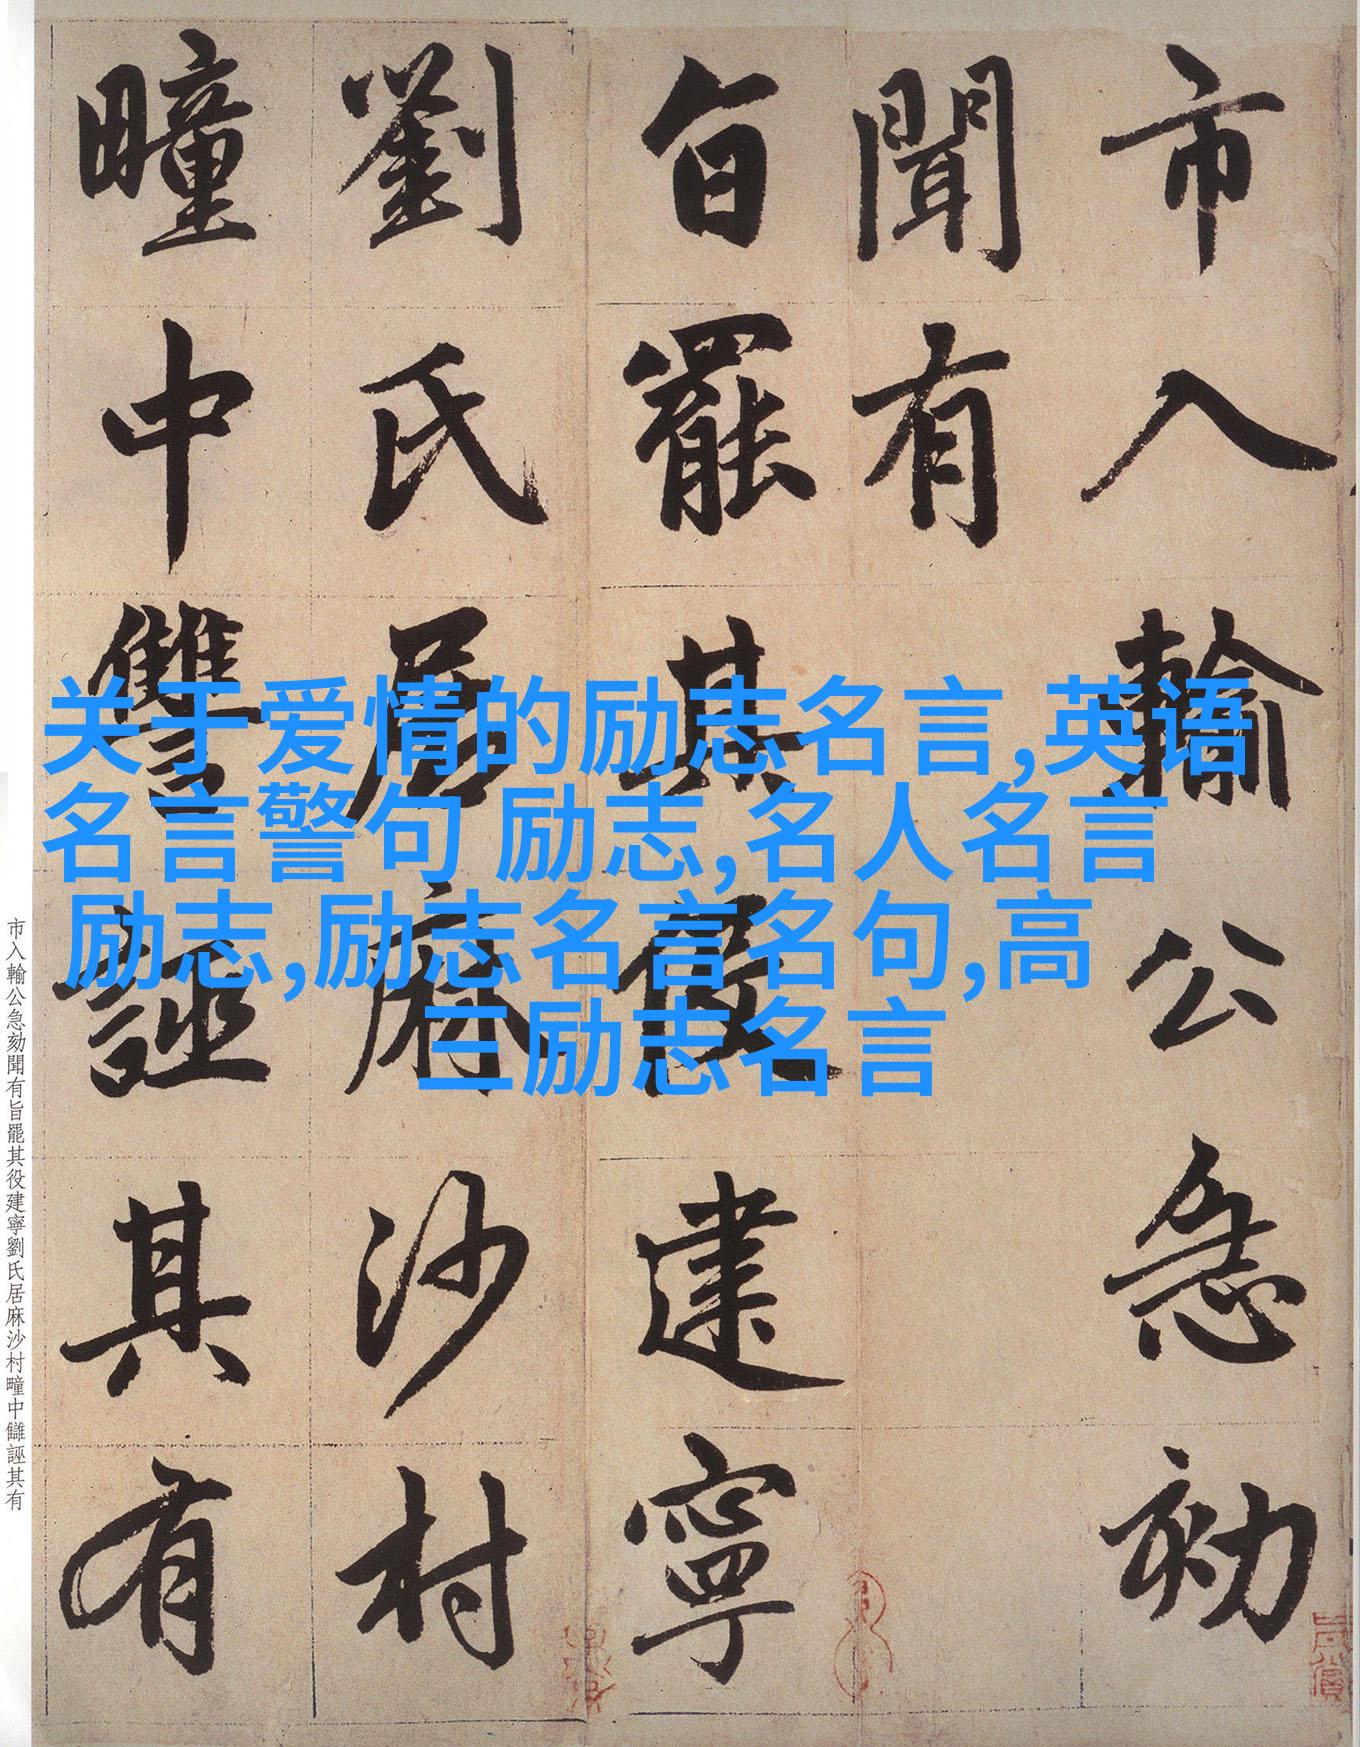 市入輸公急劾
聞有
旨罷其役建寧
劉氏居麻沙村
疃中讎誣其有
关于爱情的励志名言,英语
名言警句 励志,名人名言
励志,励志名言名句,高
三励志名言
市入輸公急劾聞有旨罷其役建寧劉氏居麻沙村疃中讎誣其有